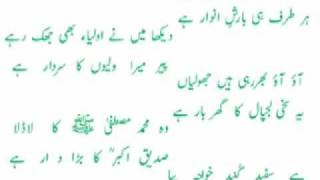 ہر طرف ہی بارش انوار ہے
دیکھا میں نے اولیاء بھی جھک رہے
پیر میرا ولیوں کا سردار ہے
آؤ آؤ بھر رہی ہیں جھولیاں
یہ سخی لجپال کا گھر بار ہے
وہ محمد مصطفیٰ ﷺ کا لاڈلا
صدیق اکبرؓ کا بڑا دار ہے
ہے سفید گنبد خواجہ